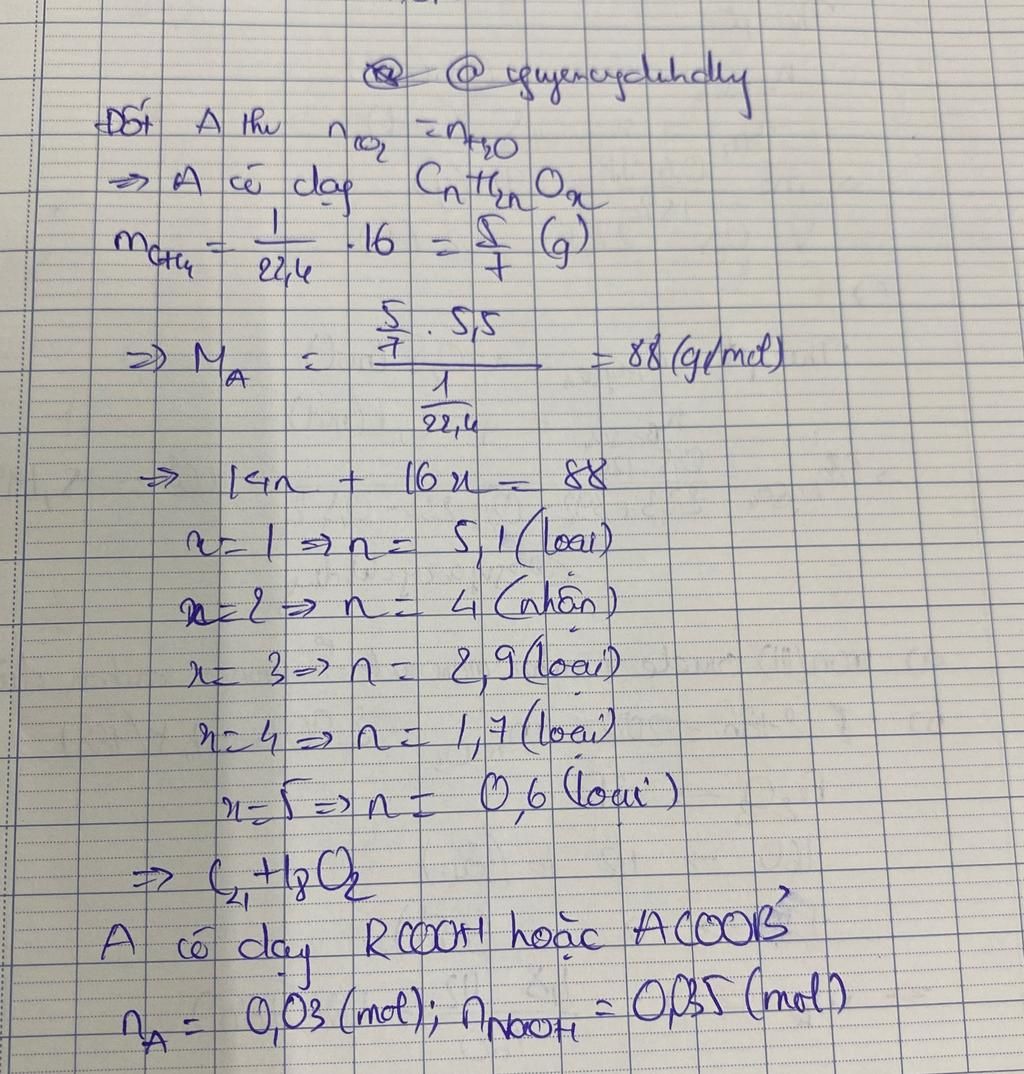 @ @nguyencgduhdhy
Đốt A thu nCO2 = nH2O
=> A có dạng CnH2nOx
mCH4 = 1/22,4 . 16 = 5/7 (g)
=> MA = (5/7 . 5,5)/(1/22,4) = 88 (g/mol)
=> 14n + 16x = 88
x = 1 => n = 5,1 (loại)
x = 2 => n = 4 (nhận)
x = 3 => n = 2,9 (loại)
x = 4 => n = 1,7 (loại)
x = 5 => n = 0,6 (loại)
=> C4H8O2
A có dạng RCOOH hoặc ACOOB'
nA = 0,03 (mol); nNaOH = 0,035 (mol)